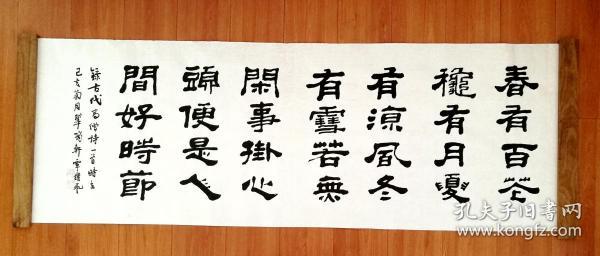 春有百花
龝有月夏
有涼風冬
有雪若無
閑事掛心
頭便是人
間好時節
錄古代高僧詩一首時在
己亥菊月
孔夫子旧书网
www.kongfz.com